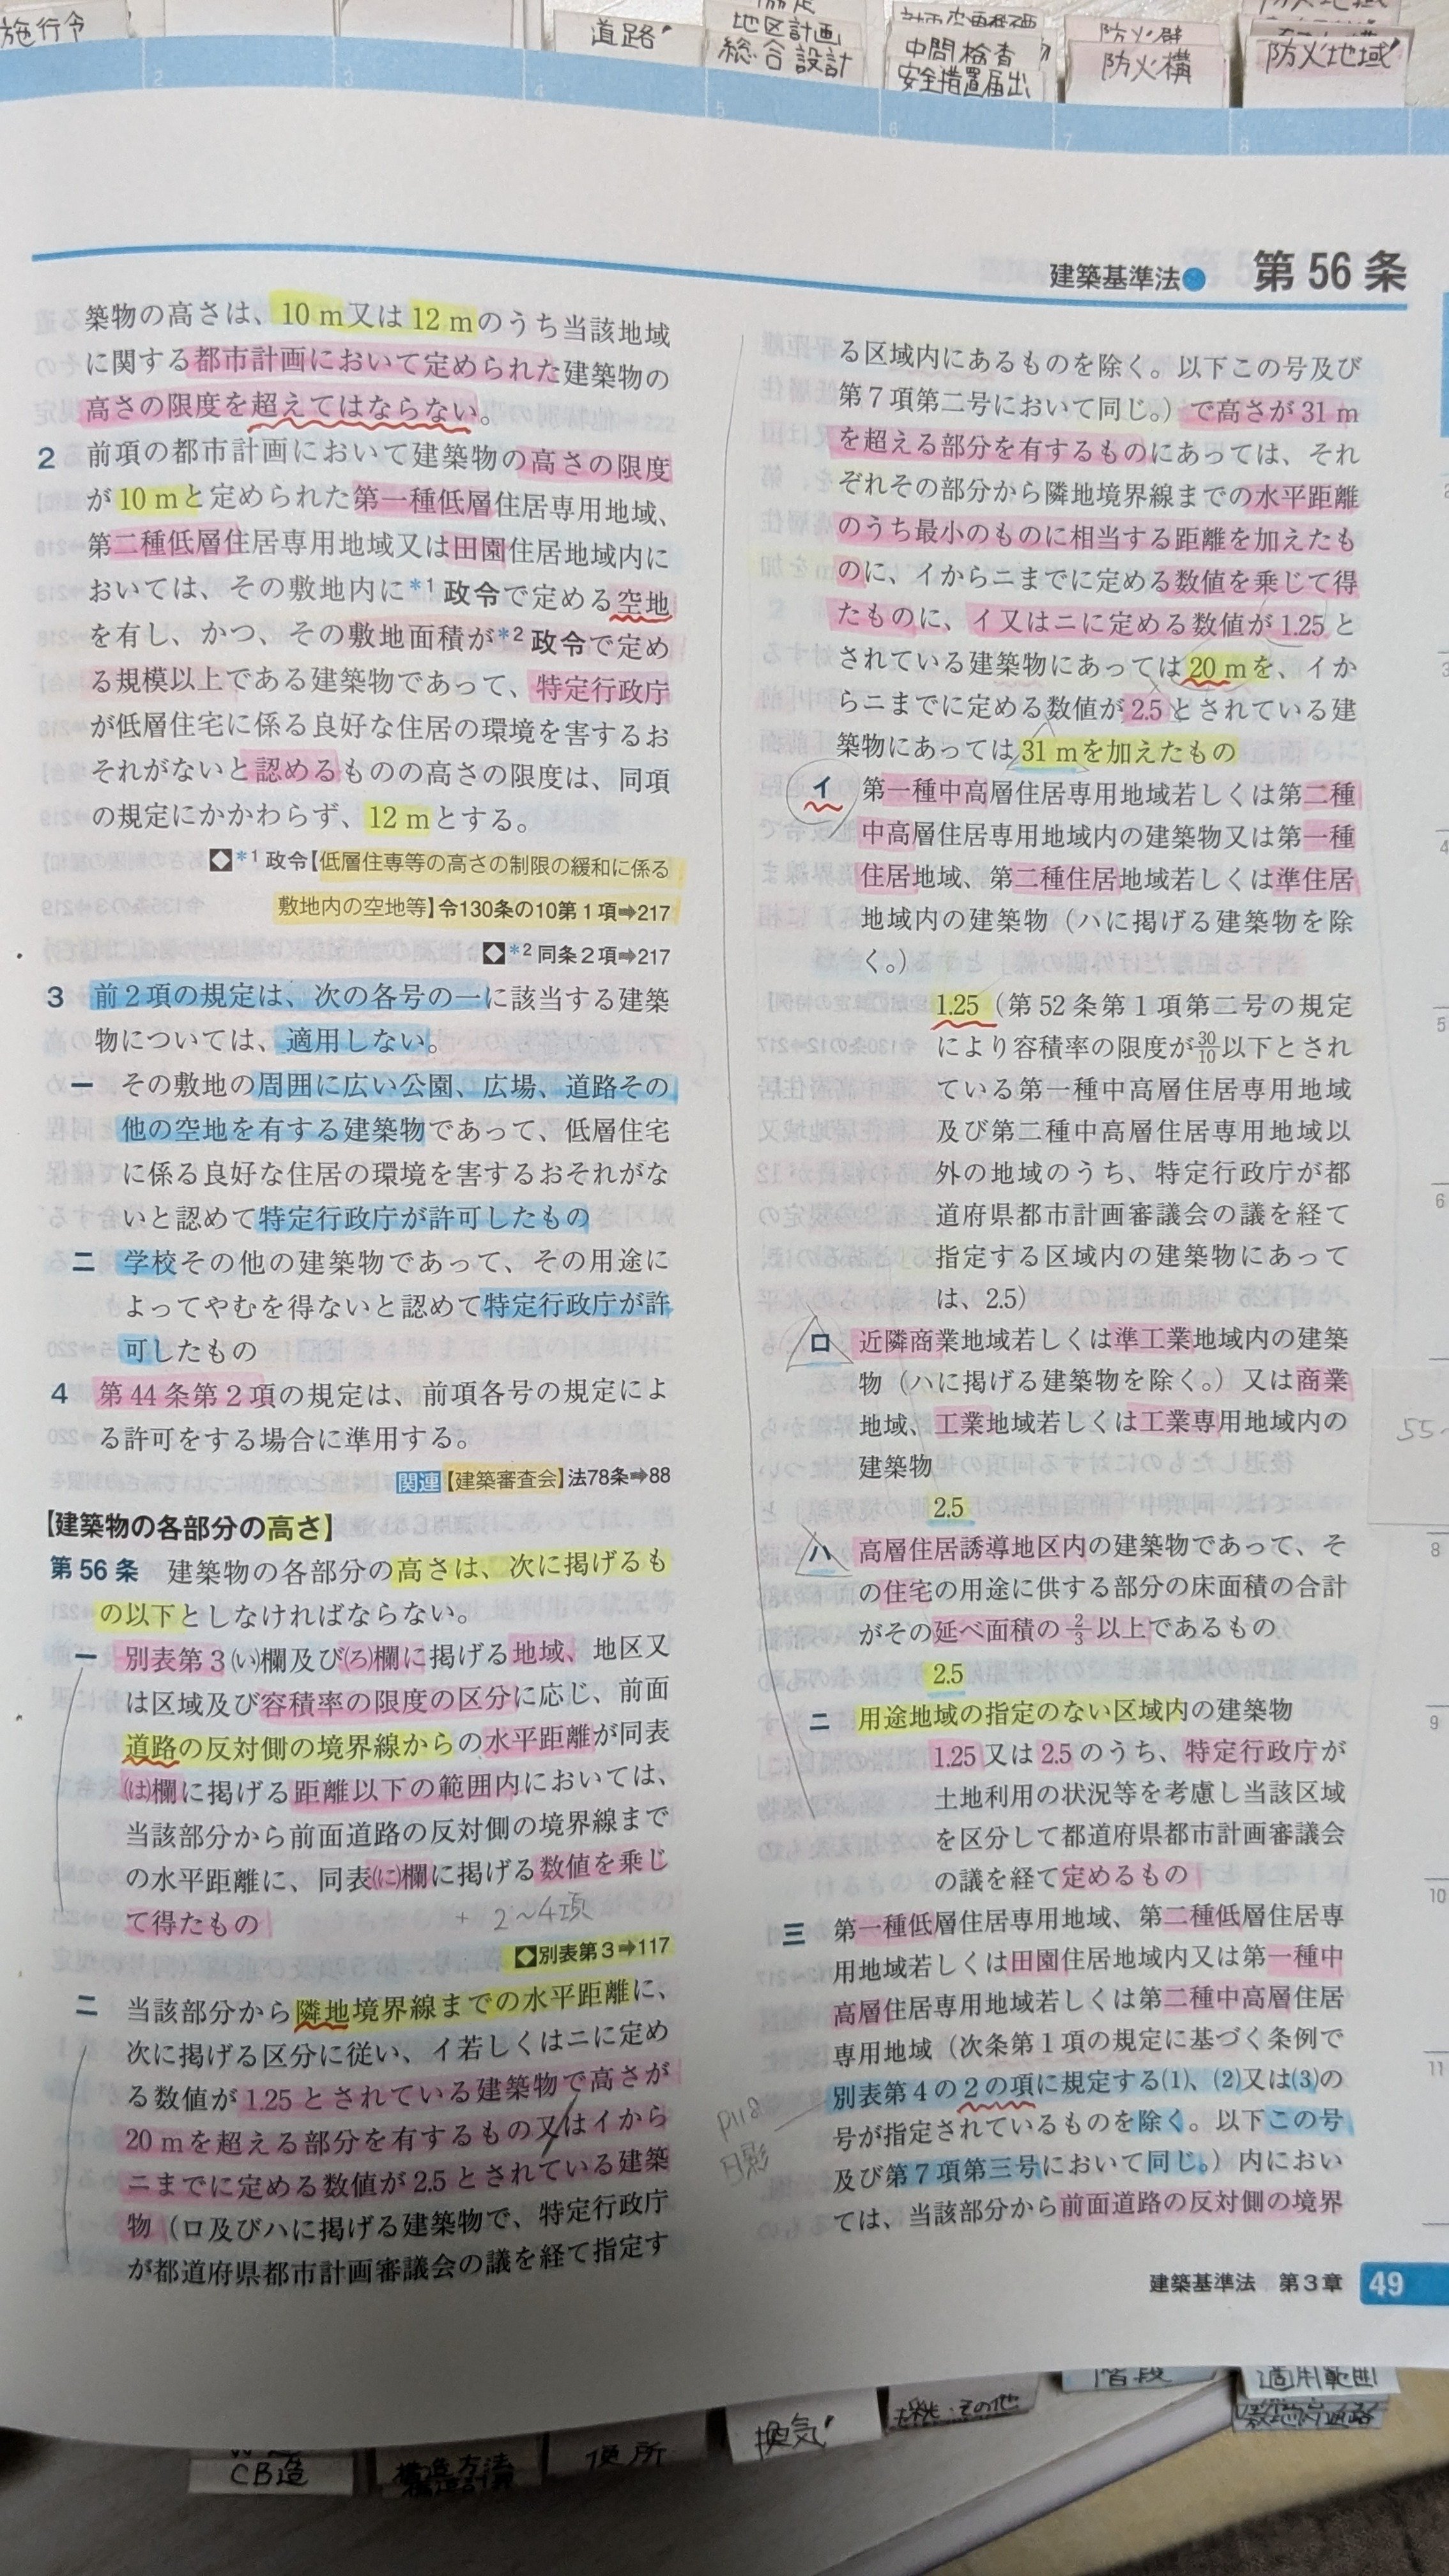 施行令
道路
地区計画
総合設計
中間検査
安全措置届出
防火壁
防火構
防火地域
2
3
4
5
6
7
8
建築基準法● 第56条
築物の高さは、10m又は12mのうち当該地域
に関する都市計画において定められた建築物の
高さの限度を超えてはならない。
2 前項の都市計画において建築物の高さの限度
が10mと定められた第一種低層住居専用地域、
第二種低層住居専用地域又は田園住居地域内に
おいては、その敷地内に*1政令で定める空地
を有し、かつ、その敷地面積が*2政令で定め
る規模以上である建築物であって、特定行政庁
が低層住宅に係る良好な住居の環境を害するお
それがないと認めるものの高さの限度は、同項
の規定にかかわらず、12mとする。
◆*1政令【低層住専等の高さの制限の緩和に係る
敷地内の空地等】令130条の10第1項➡217
◆*2同条2項➡217
3 前2項の規定は、次の各号の一に該当する建築
物については、適用しない。
一 その敷地の周囲に広い公園、広場、道路その
他の空地を有する建築物であって、低層住宅
に係る良好な住居の環境を害するおそれがな
いと認めて特定行政庁が許可したもの
二 学校その他の建築物であって、その用途に
よってやむを得ないと認めて特定行政庁が許
可したもの
4 第44条第2項の規定は、前項各号の規定によ
る許可をする場合に準用する。
関連【建築審査会】法78条➡88
【建築物の各部分の高さ】
第56条 建築物の各部分の高さは、次に掲げるも
の以下としなければならない。
一 別表第3(い)欄及び(ろ)欄に掲げる地域、地区又
は区域及び容積率の限度の区分に応じ、前面
道路の反対側の境界線からの水平距離が同表
(は)欄に掲げる距離以下の範囲内においては、
当該部分から前面道路の反対側の境界線まで
の水平距離に、同表(に)欄に掲げる数値を乗じ
て得たもの
+ 2〜4項
◆別表第3➡117
二 当該部分から隣地境界線までの水平距離に、
次に掲げる区分に従い、イ若しくはニに定め
る数値が1.25とされている建築物で高さが
20mを超える部分を有するもの又はイから
ニまでに定める数値が2.5とされている建築
物（ロ及びハに掲げる建築物で、特定行政庁
が都道府県都市計画審議会の議を経て指定す
る区域内にあるものを除く。以下この号及び
第7項第二号において同じ。）で高さが31m
を超える部分を有するものにあっては、それ
ぞれその部分から隣地境界線までの水平距離
のうち最小のものに相当する距離を加えたも
のに、イからニまでに定める数値を乗じて得
たものに、イ又はニに定める数値が1.25と
されている建築物にあっては20mを、イか
らニまでに定める数値が2.5とされている建
築物にあっては31mを加えたもの
イ 第一種中高層住居専用地域若しくは第二種
中高層住居専用地域内の建築物又は第一種
住居地域、第二種住居地域若しくは準住居
地域内の建築物（ハに掲げる建築物を除
く。）
1.25（第52条第1項第二号の規定
により容積率の限度が30/10以下とされ
ている第一種中高層住居専用地域
及び第二種中高層住居専用地域以
外の地域のうち、特定行政庁が都
道府県都市計画審議会の議を経て
指定する区域内の建築物にあって
は、2.5）
ロ 近隣商業地域若しくは準工業地域内の建築
物（ハに掲げる建築物を除く。）又は商業
地域、工業地域若しくは工業専用地域内の
建築物
2.5
ハ 高層住居誘導地区内の建築物であって、そ
の住宅の用途に供する部分の床面積の合計
がその延べ面積の2/3以上であるもの
2.5
ニ 用途地域の指定のない区域内の建築物
1.25又は2.5のうち、特定行政庁が
土地利用の状況等を考慮し当該区域
を区分して都道府県都市計画審議会
の議を経て定めるもの
三 第一種低層住居専用地域、第二種低層住居専
用地域若しくは田園住居地域内又は第一種中
高層住居専用地域若しくは第二種中高層住居
専用地域（次条第1項の規定に基づく条例で
別表第4の2の項に規定する(1)、(2)又は(3)の
号が指定されているものを除く。以下この号
及び第7項第三号において同じ。）内におい
ては、当該部分から前面道路の反対側の境界
P118
日影
55
4
5
6
8
9
10
11
建築基準法 第3章 49
階段
適用範囲
換気
採光・その他
便所
構造方法
構造計算
CB造
敷地内通路